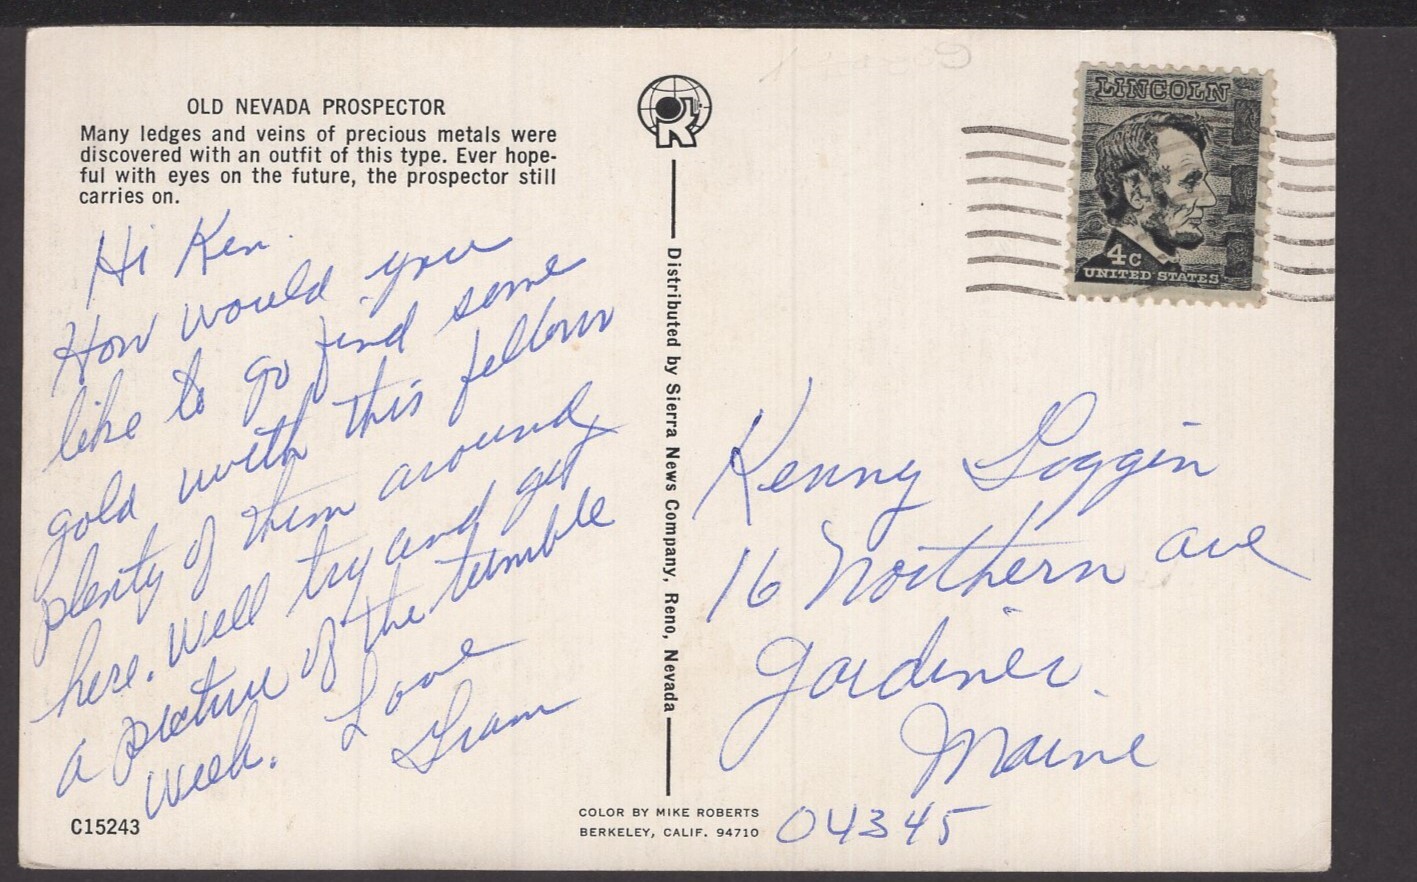 OLD NEVADA PROSPECTOR
Many ledges and veins of precious metals were
discovered with an outfit of this type. Ever hope-
ful with eyes on the future, the prospector still
carries on.
Hi Ken.
How would you
like to go find some
gold with this fellow
plenty of them around
here. Well try and get
a picture of the tumble
weeh. Love
Gram
C15243
Distributed by Sierra News Company, Reno, Nevada
COLOR BY MIKE ROBERTS
BERKELEY, CALIF. 94710
LINCOLN
4c
UNITED STATES
Kenny Loggin
16 Northern ave
Gardiner.
Maine
04345